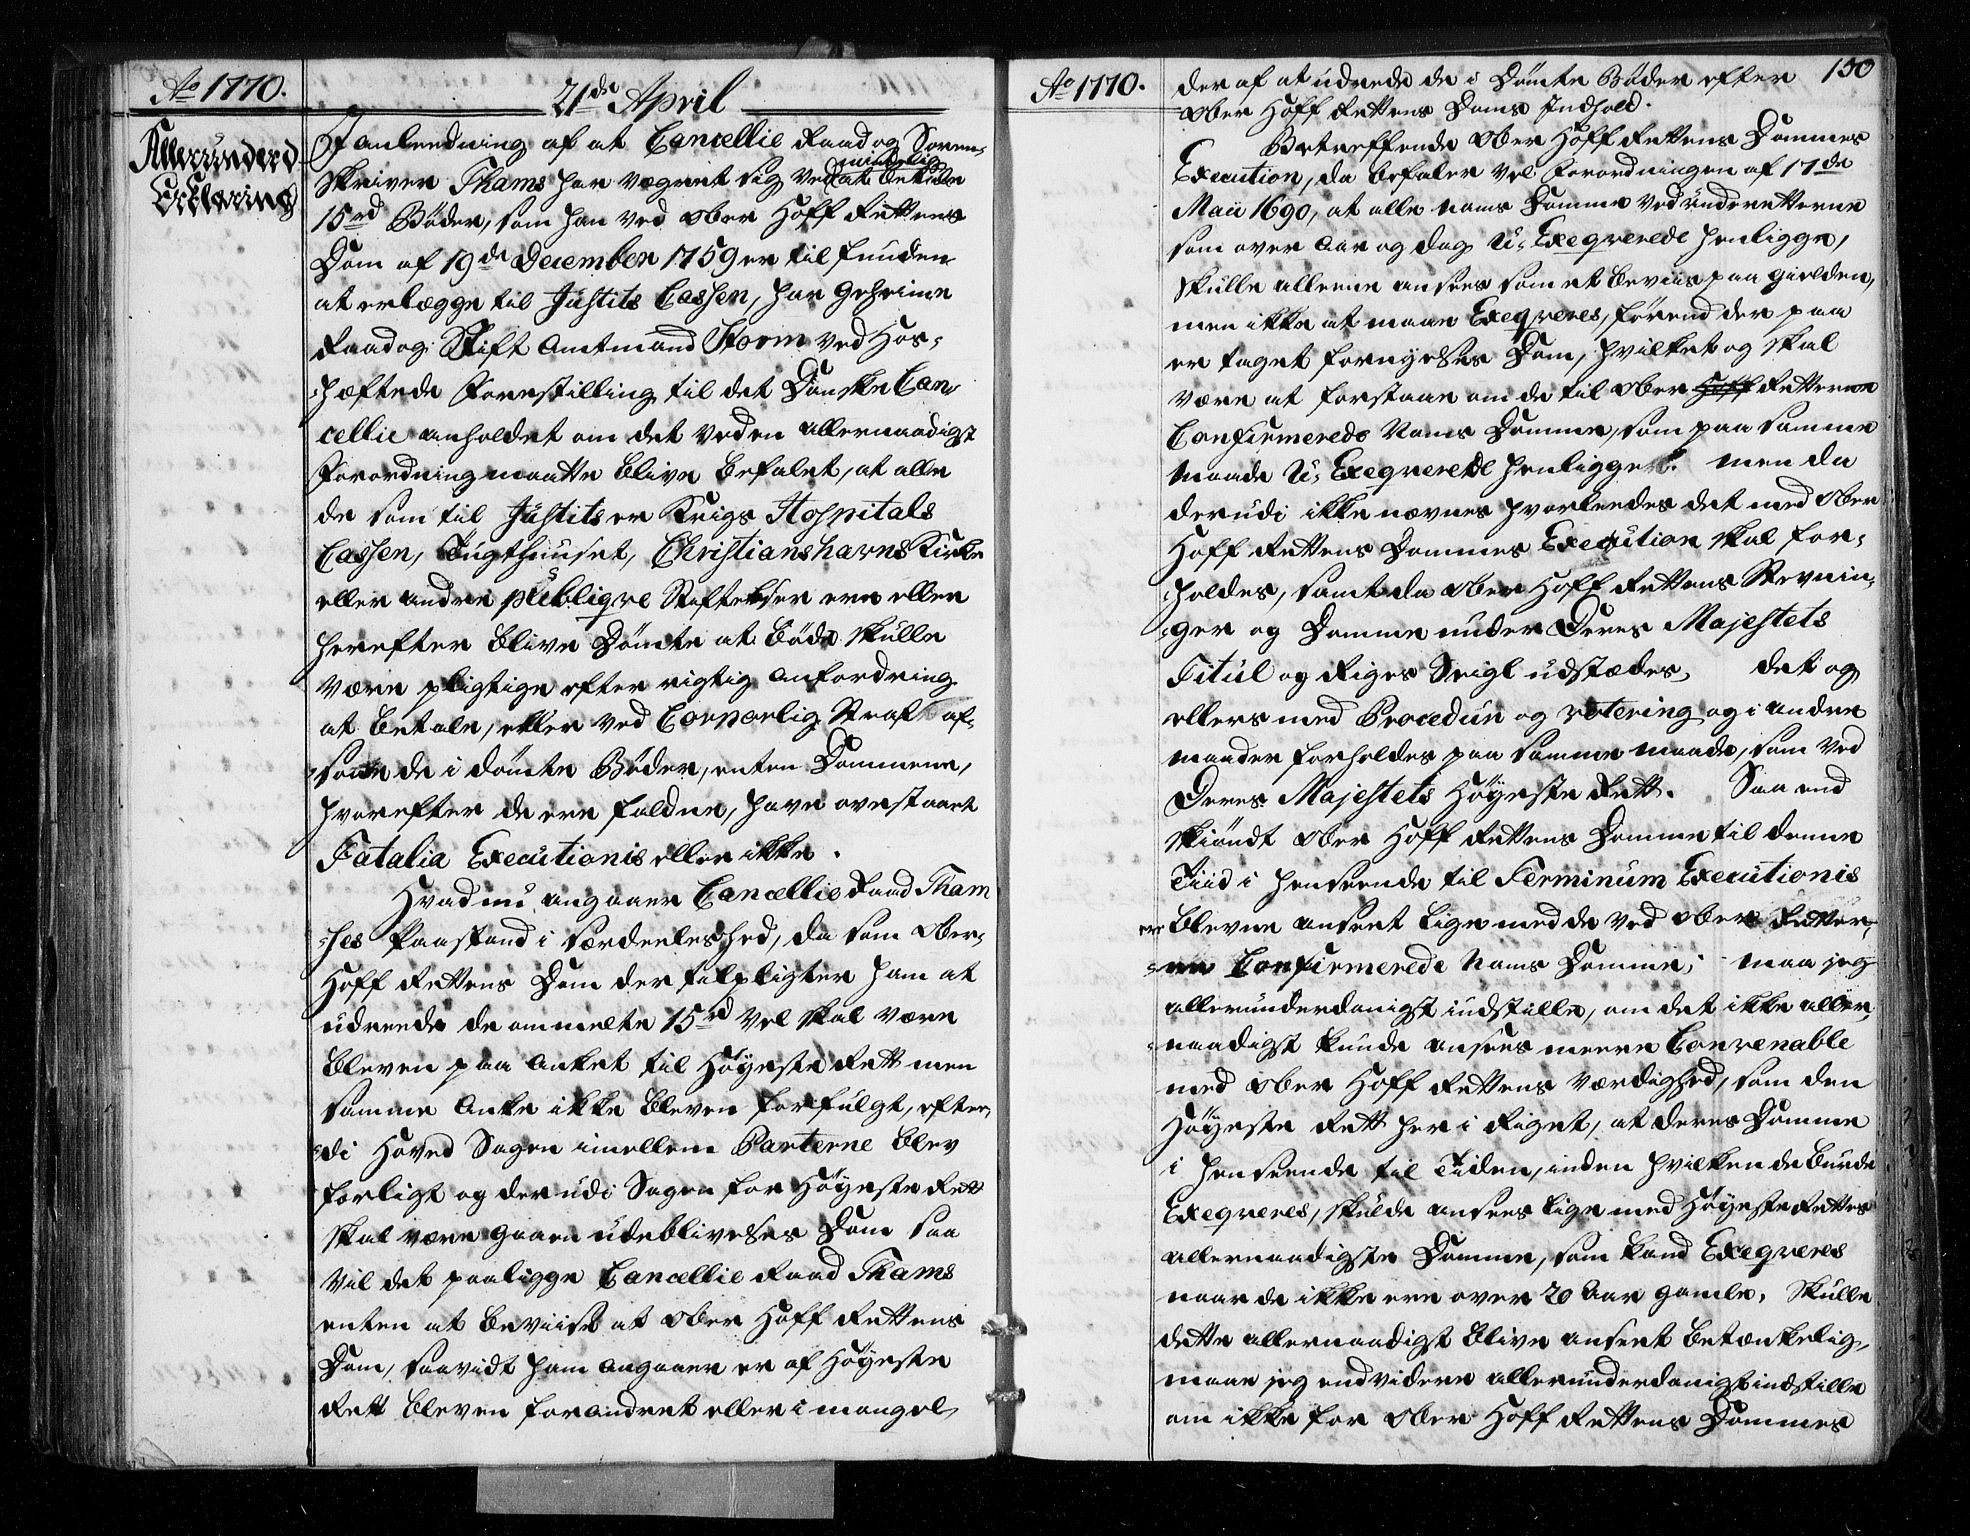 Ao 1770.
21de April
Allerunderd
Erklæring
I anledning af at Cancellie Raad og Soren-
skriver Thams har vægret sig ved at betale
15rd Bøder, som han ved Ober Hoff Rettens
Dom af 19de December 1759 er tilfunden
at erlægge til Justits Cassen, har Geheime
Raad og Stift Amtmand Storm ved Hos-
hæftede Forestilling til det Danske Can-
cellie anholdet om det ved en allernaadigst
Forordning maatte blive befalet, at alle
de som til Justits er Krigs Hospitals
Cassen, Tugthuuset, Christianshavns Kirke
eller andre publiqve Stiftelser ere eller
herefter blive Dömte at bøde skulle
være pligtige efter rigtig anfordring
at betale, eller ved Corporlig Straf af-
sone de i dömte Bøder, enten Dommene,
hvorefter de ere faldne, have overstaaet
Fatalia Executionis eller ikke.
Hvad nu angaaer Cancellie Raad Tham
ses Paastand i særdeeleshed, da som Ober-
Hoff Rettens Dom der tilpligter ham at
udreede de ommelte 15rd vel skal være
bleven paa anket til Höyeste Rett men
samme Anke ikke bleven forfulgt, efter-
di Hoved Sagen imellem Parterne blev
forligt og der udi Sagen for Höyeste Rett
skal være gaaen udeblivelses Dom saa
vil det paaligge Cancellie Raad Thams
enten at beviise at Ober Hoff Rettens
Dom, saavidt ham angaaer er af Höyeste
Rett bleven forandret eller i mangel
Ao 1770.
150
der af at udrede de i Dömte Bøder efter
Ober Hoff Rettens Doms Indhold.
Betreffende Ober Hoff Rettens Dommes
Execution, da befaler vel Forordningen af 17de
Maii 1690, at alle Nams Domme ved underretterne
som over Aar og dag U-Exeqverede henligge,
skulle alleene ansees som et beviis paa gielden,
men ikke at maae Exeqveres, förend der paa
er taget fornyelses Dom, hvilket og skal
være at forstaae om de til Ober Hoff Retterne
Confirmerede Nams Domme, som paa samme
maade U-Exeqverede henligger. men da
der udi ikke nævnes hvorledes det med Ober
Hoff Rettens Dommes Execution skal for-
holdes, samt da Ober Hoff Rettens Stevnin-
ger og Domme under Deres Majestets
Titul og Riges Seigl udstædes, det og
ellers med Procedur og votering og i andre
maader forholdes paa samme maade, som ved
Deres Majestets Höyeste Rett. Saa end
skiöndt Ober Hoff Rettens Domme til denne
Tiid i henseende til Terminum Executionis
ere blevne anseet lige med de ved Ober Retter-
ne Confirmerede Nams Domme; maa jeg
allerunderdanigst indstille, om det ikke aller-
naadigst kunde ansees meere Convenable
med Ober Hoff Rettens værdighed, som den
Höyeste Rett her i Riget, at deres Domme
i henseende til Tiiden, inden hvilken de burde
Exeqveres, skulde ansees lige med Höyeste Rettes
allernaadigste Domme, som kand Exeqveres
naar de ikke ere over 20 Aar gamle. Skulle
dette allernaadigst blive anseet betænkelig,
maae jeg endvidere allerunderdanigst indstille
om ikke for Ober Hoff Rettens Dommes